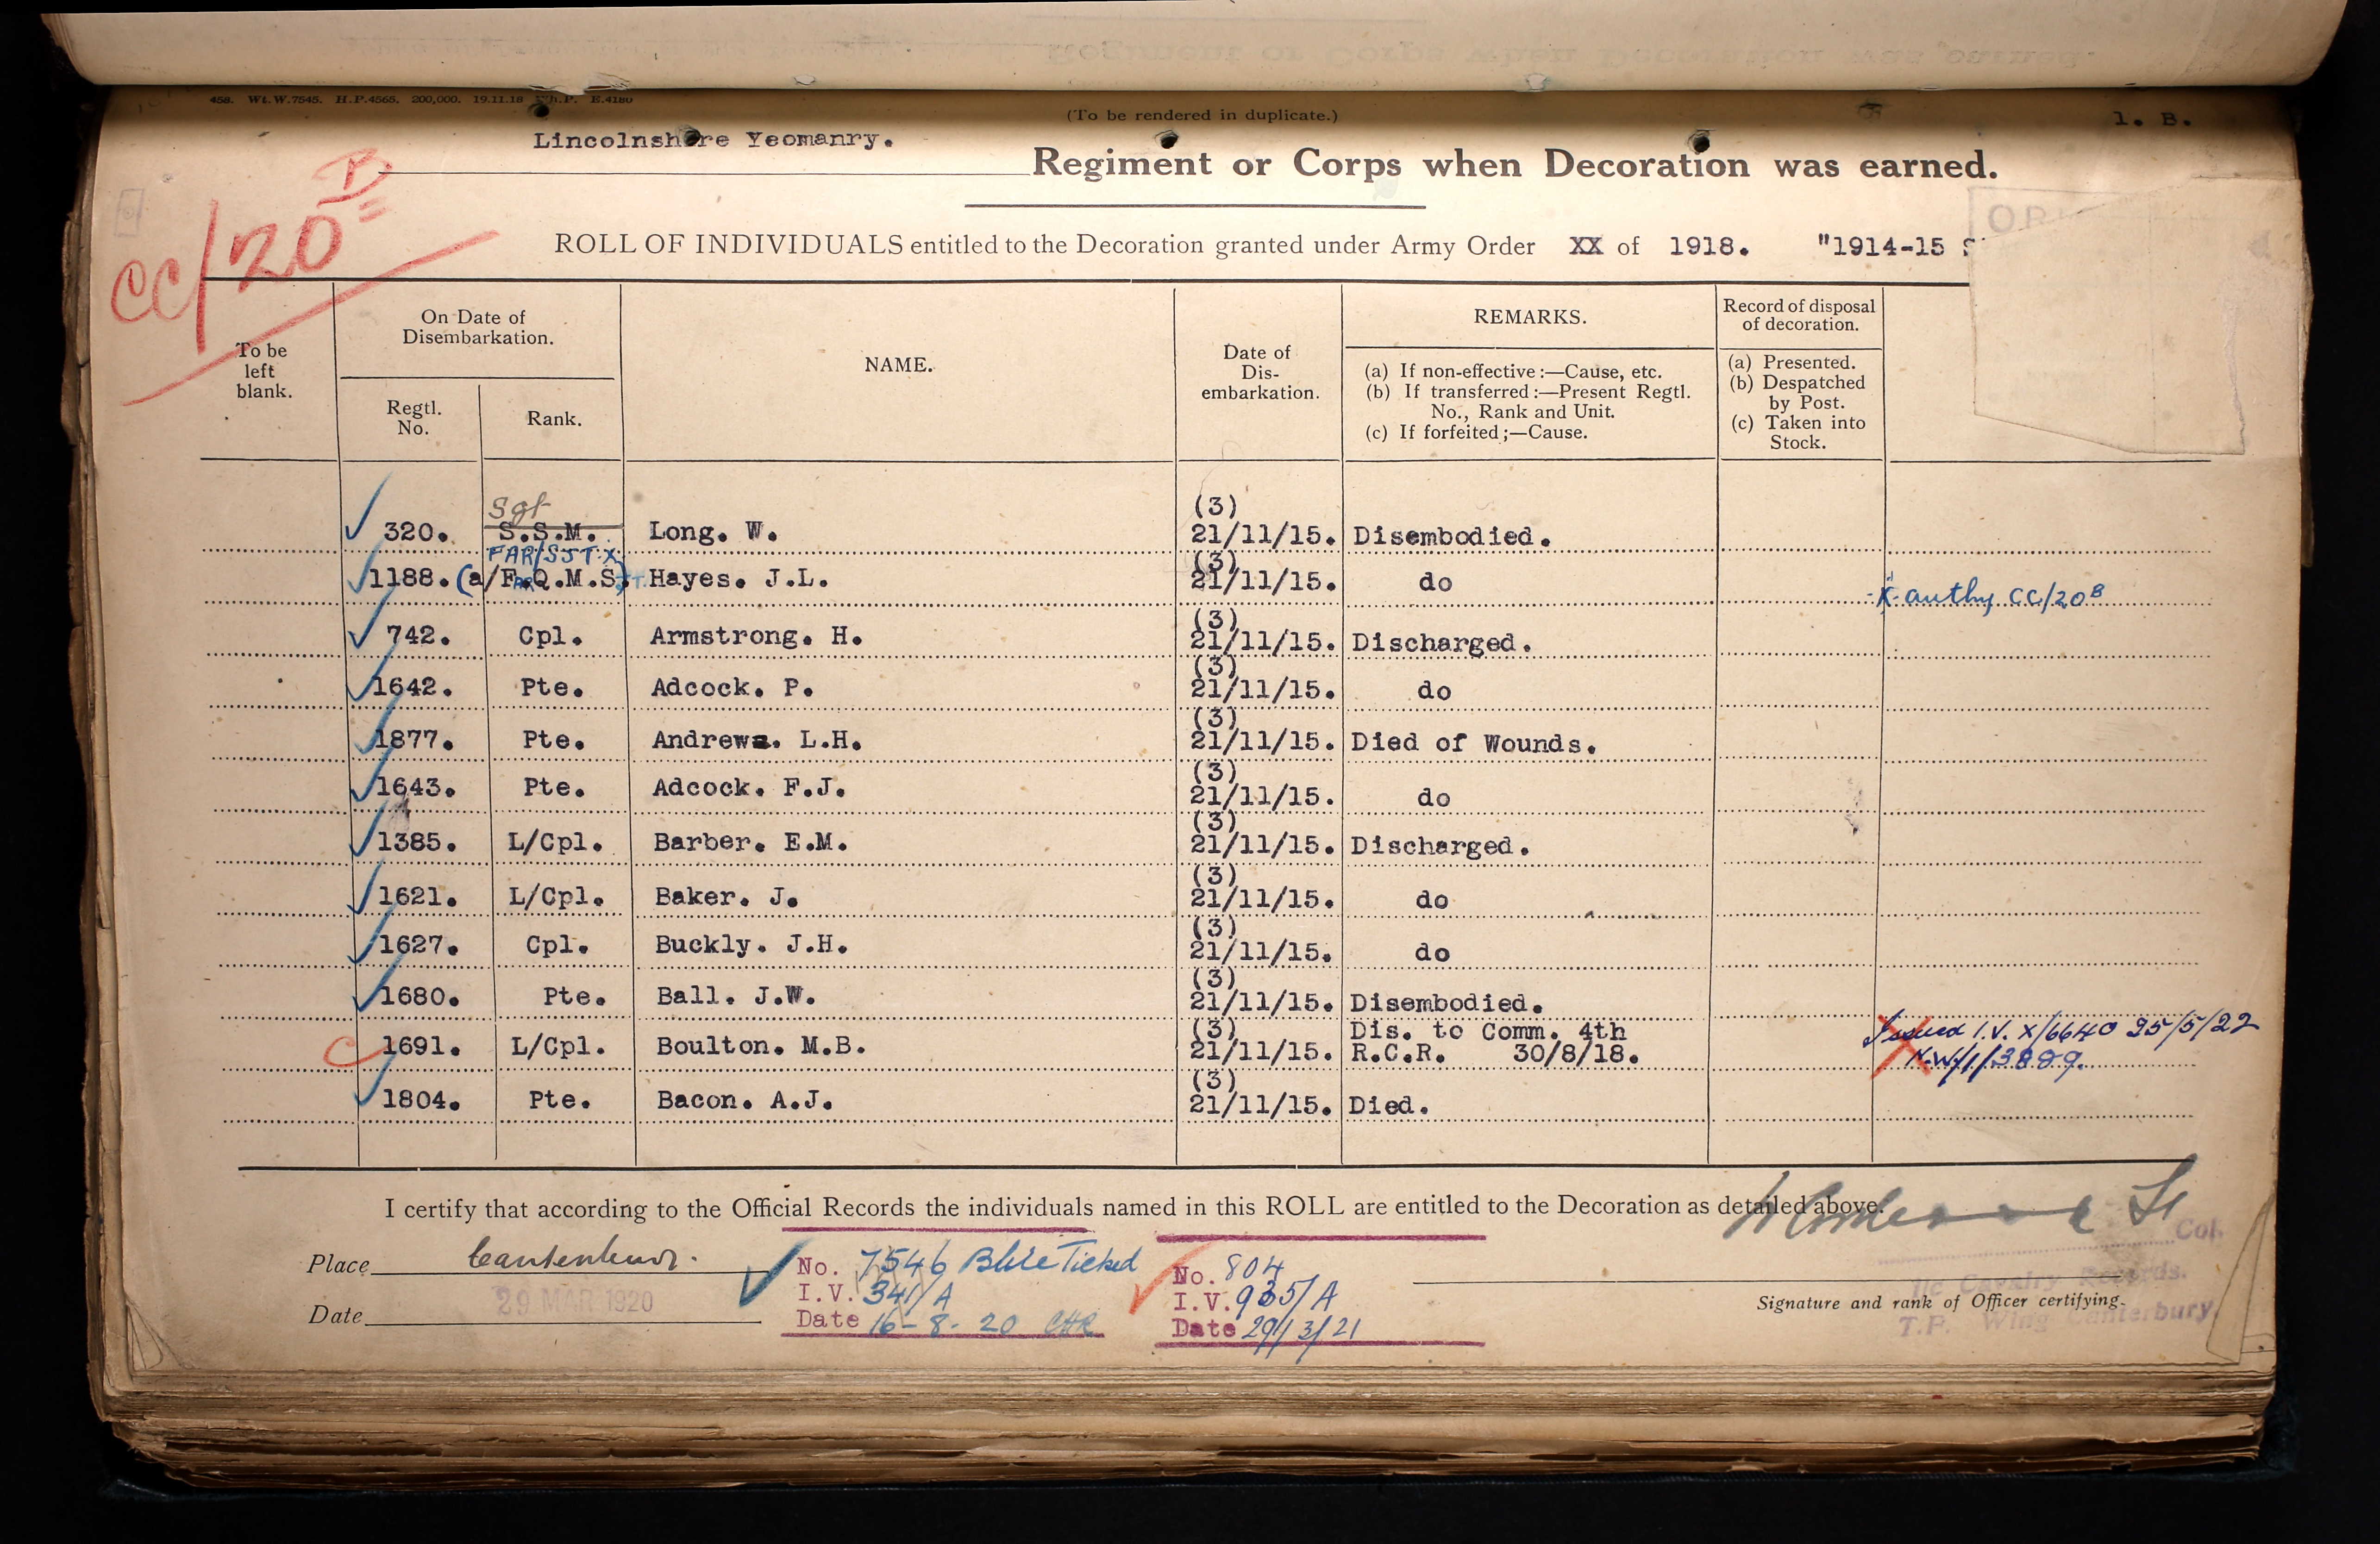 458. Wt.W.7545. H.P.4565. 200,000. 19.11.18 Wh.P. E.4180
(To be rendered in duplicate.)
1. B.
Lincolnshire Yeomanry.
Regiment or Corps when Decoration was earned.
CC/20 B
ROLL OF INDIVIDUALS entitled to the Decoration granted under Army Order XX of 1918. "1914-15 S
To be left blank.
On Date of Disembarkation.
Regtl. No.
Rank.
NAME.
Date of Dis-embarkation.
REMARKS.
(a) If non-effective:—Cause, etc.
(b) If transferred:—Present Regtl. No., Rank and Unit.
(c) If forfeited;—Cause.
Record of disposal of decoration.
(a) Presented.
(b) Despatched by Post.
(c) Taken into Stock.
Sgt
320. S.S.M. Long. W. (3) 21/11/15. Disembodied.
FAR/SJT X
1188. (a/F.Q.M.S. Hayes. J.L. (3) 21/11/15. do X authy CC/20 B
742. Cpl. Armstrong. H. (3) 21/11/15. Discharged.
1642. Pte. Adcock. P. (3) 21/11/15. do
1877. Pte. Andrews. L.H. (3) 21/11/15. Died of Wounds.
1643. Pte. Adcock. F.J. (3) 21/11/15. do
1385. L/Cpl. Barber. E.M. (3) 21/11/15. Discharged.
1621. L/Cpl. Baker. J. (3) 21/11/15. do
1627. Cpl. Buckly. J.H. (3) 21/11/15. do
1680. Pte. Ball. J.W. (3) 21/11/15. Disembodied.
C 1691. L/Cpl. Boulton. M.B. (3) 21/11/15. Dis. to Comm. 4th R.C.R. 30/8/18. Issued I.V. X/6640 25/5/22 N.W/1/3889.
1804. Pte. Bacon. A.J. (3) 21/11/15. Died.
I certify that according to the Official Records the individuals named in this ROLL are entitled to the Decoration as detailed above.
Place Canterbury.
Date 29 MAR 1920
No. 7546 Blue Ticked
I.V. 341/A
Date 16-8-20
No. 804
I.V. 935/A
Date 29/3/21
Col.
i/c Cavalry Records.
T.F. Wing Canterbury.
Signature and rank of Officer certifying.